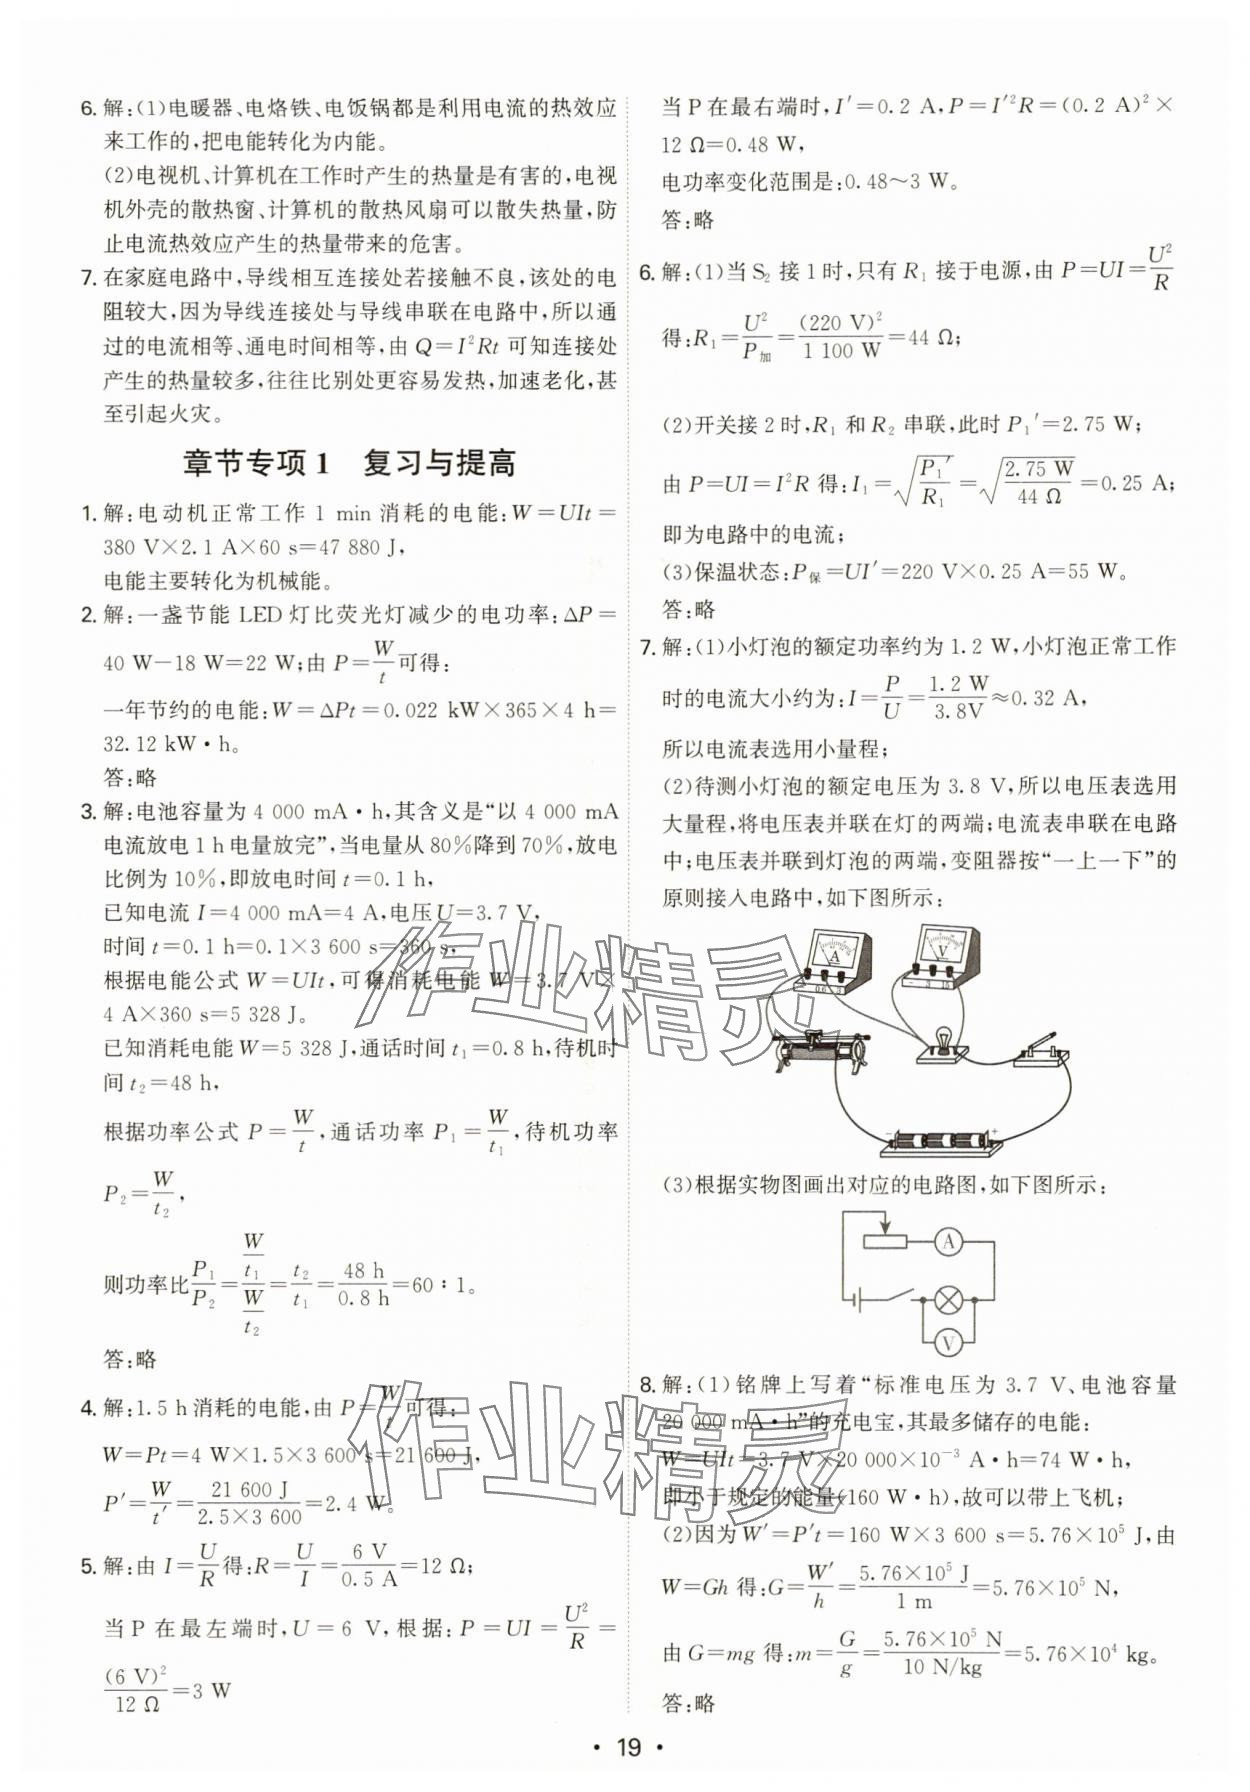 6. 解:(1)电暖器、电烙铁、电饭锅都是利用电流的热效应
来工作的,把电能转化为内能。
(2)电视机、计算机在工作时产生的热量是有害的,电视
机外壳的散热窗、计算机的散热风扇可以散失热量,防
止电流热效应产生的热量带来的危害。
7. 在家庭电路中,导线相互连接处若接触不良,该处的电
阻较大,因为导线连接处与导线串联在电路中,所以通
过的电流相等、通电时间相等,由 Q=I²Rt 可知连接处
产生的热量较多,往往比别处更容易发热,加速老化,甚
至引起火灾。
章节专项 1 复习与提高
1. 解:电动机正常工作 1 min 消耗的电能:W=UIt=
380 V×2.1 A×60 s=47 880 J,
电能主要转化为机械能。
2. 解:一盏节能 LED 灯比荧光灯减少的电功率:ΔP=
40 W-18 W=22 W;由 P=W/t可得:
一年节约的电能:W=ΔPt=0.022 kW×365×4 h=
32.12 kW·h。
答:略
3. 解:电池容量为 4 000 mA·h,其含义是“以 4 000 mA
电流放电 1 h 电量放完”,当电量从 80%降到 70%,放电
比例为 10%,即放电时间 t=0.1 h,
已知电流 I=4 000 mA=4 A,电压U=3.7 V,
时间 t=0.1 h=0.1×3 600 s=360 s,
根据电能公式 W=UIt,可得消耗电能 W=3.7 V×
4 A×360 s=5 328 J。
已知消耗电能 W=5 328 J,通话时间 t₁=0.8 h,待机时
间 t₂=48 h,
根据功率公式 P=W/t,通话功率 P₁=W/t₁,待机功率
P₂=W/t₂,
则功率比P₁/P₂=(W/t₁)/(W/t₂)=t₂/t₁=48 h/0.8 h=60∶1。
答:略
4. 解:1.5 h 消耗的电能,由 P=W/t可得:
W=Pt=4 W×1.5×3 600 s=21 600 J,
P′=W/t′=21 600 J/(2.5×3 600)=2.4 W。
5. 解:由 I=U/R得:R=U/I=6 V/0.5 A=12 Ω;
当 P 在最左端时,U=6 V,根据:P=UI=U²/R=
(6 V)²/12 Ω=3 W
当 P 在最右端时,I′=0.2 A,P=I′²R=(0.2 A)²×
12 Ω=0.48 W,
电功率变化范围是:0.48～3 W。
答:略
6. 解:(1)当 S₂ 接 1 时,只有 R₁ 接于电源,由 P=UI=U²/R
得:R₁=U²/P加=(220 V)²/1 100 W=44 Ω;
(2)开关接 2 时,R₁ 和 R₂ 串联,此时 P₁′=2.75 W;
由 P=UI=I²R 得:I₁=√(P₁′/R₁)=√(2.75 W/44 Ω)=0.25 A;
即为电路中的电流;
(3)保温状态:P保=UI′=220 V×0.25 A=55 W。
答:略
7. 解:(1)小灯泡的额定功率约为 1.2 W,小灯泡正常工作
时的电流大小约为:I=P/U=1.2 W/3.8V≈0.32 A,
所以电流表选用小量程;
(2)待测小灯泡的额定电压为 3.8 V,所以电压表选用
大量程,将电压表并联在灯的两端;电流表串联在电路
中;电压表并联到灯泡的两端,变阻器按“一上一下”的
原则接入电路中,如下图所示:
A
- 0.6 3
V
- 3 15
- +
(3)根据实物图画出对应的电路图,如下图所示:
A
V
8. 解:(1)铭牌上写着“标准电压为 3.7 V、电池容量
20 000 mA·h”的充电宝,其最多储存的电能:
W=UIt=3.7 V×20 000×10⁻³ A·h=74 W·h,
即小于规定的能量(160 W·h),故可以带上飞机;
(2)因为 W′=P′t=160 W×3 600 s=5.76×10⁵ J,由
W=Gh 得:G=W′/h=5.76×10⁵ J/1 m=5.76×10⁵ N,
由 G=mg 得:m=G/g=5.76×10⁵ N/10 N/kg=5.76×10⁴ kg。
答:略
作业精灵
作业精灵
• 19 •